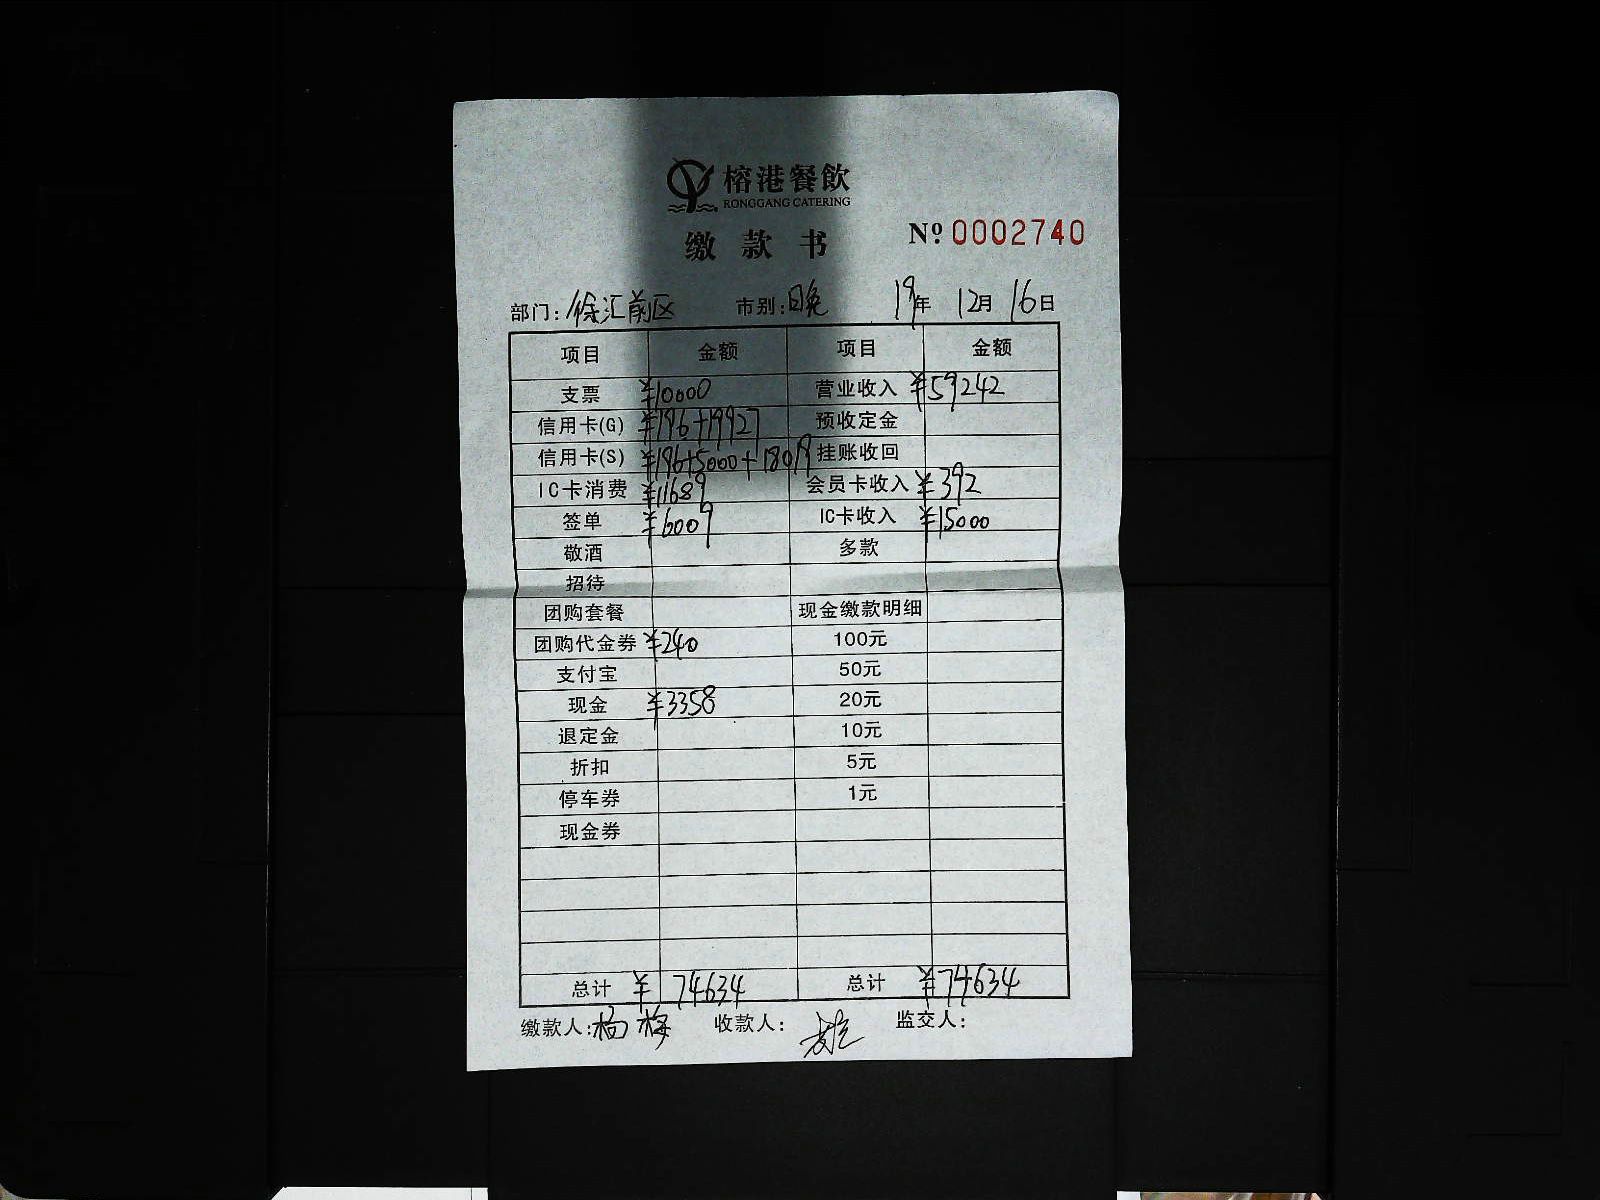 榕港餐飲
RONGGANG CATERING
缴款书 Nº 0002740
部门: 徐汇前区 市别: 日晚 19年 12月 16日
项目 金额 项目 金额
支票 ¥10000 营业收入 ¥59242
信用卡(G) ¥196+19927 预收定金
信用卡(S) ¥196+5000+18019 挂账收回
IC卡消费 ¥11689 会员卡收入 ¥392
签单 ¥6009 IC卡收入 ¥15000
敬酒 多款
招待
团购套餐 现金缴款明细
团购代金券 ¥240 100元
支付宝 50元
现金 ¥3358 20元
退定金 10元
折扣 5元
停车券 1元
现金券
总计 ¥74634 总计 ¥74634
缴款人: 杨梅 收款人: 监交人: